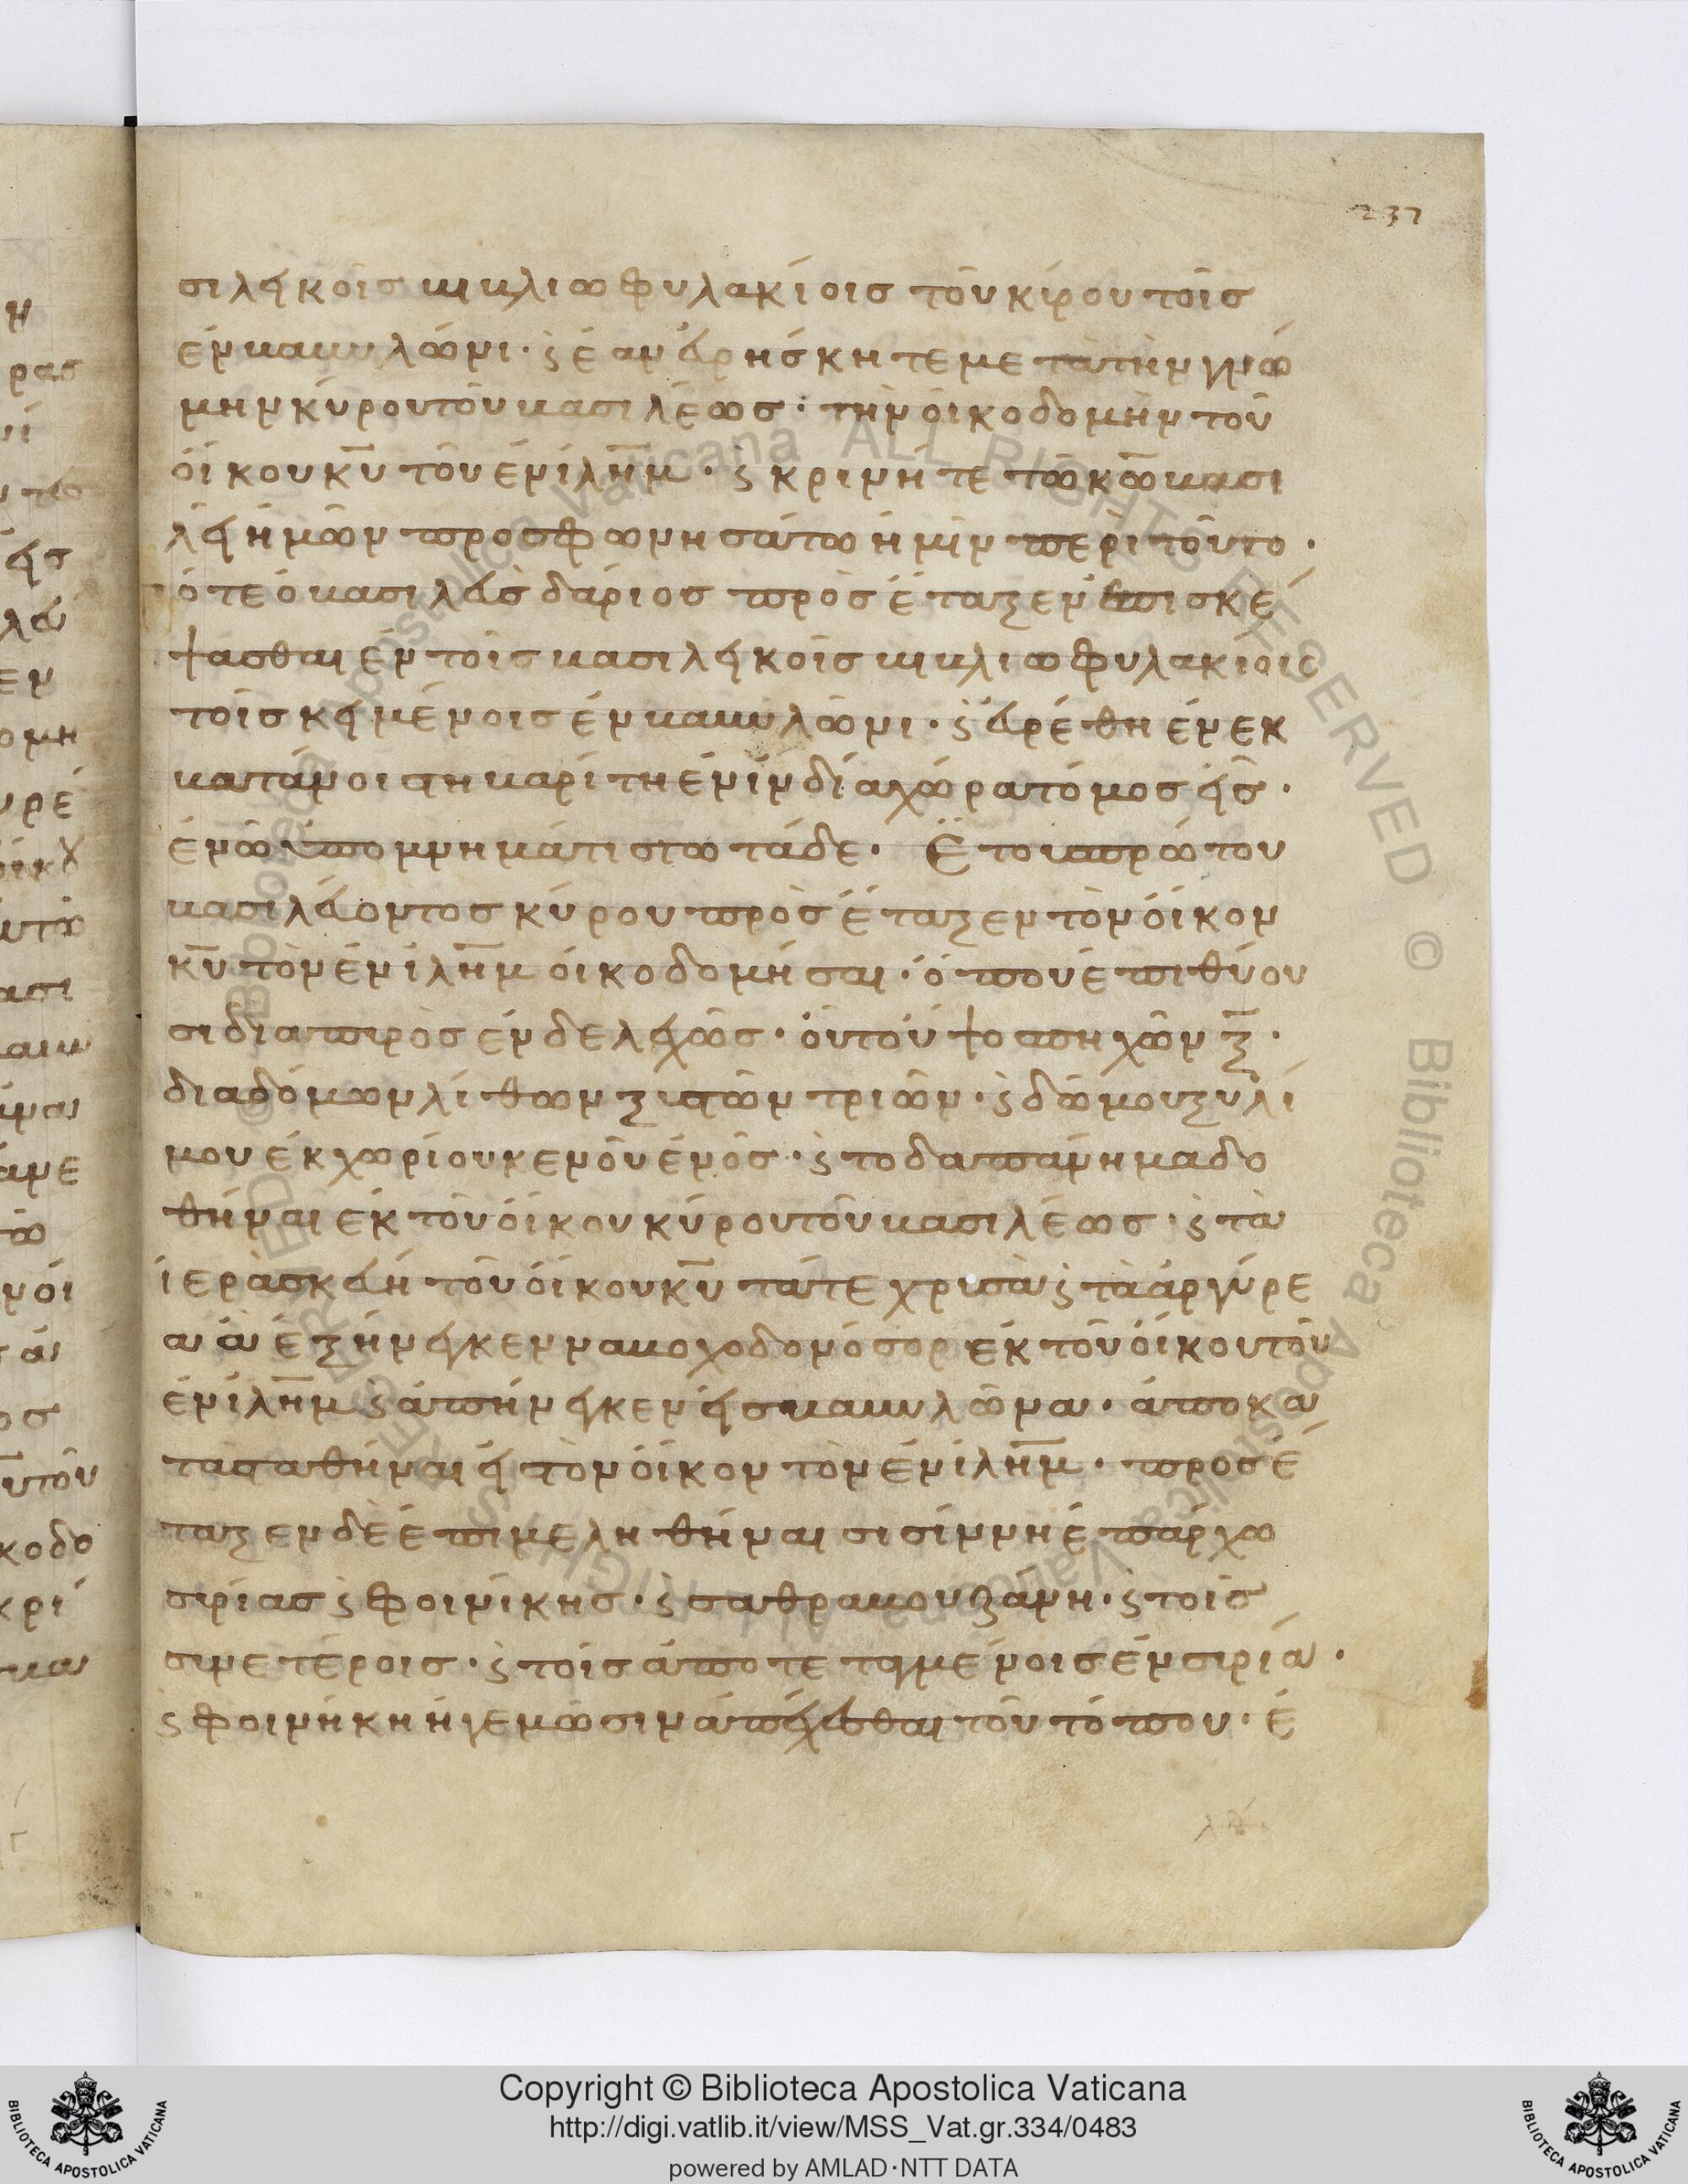 237
σιλεικοῖς βιβλιωφυλακίοις τοῦ κύρου τοῖς
ἐν βαβυλῶνι· ϛ ἐὰν εὑρήσκητε μετὰ τὴν γνώ
μην κύρου τοῦ βασιλέως· τὴν οἰκοδομὴν τοῦ
οἴκου κ̅υ̅ τοῦ ἐν ἰλη̅μ· ϛ κρινήτε τῶ κ̅ω̅ βασι
λεῖ ἡμῶν προσφωνησάτω ἡμῖν περὶ τούτο·
ὅτε ὁ βασιλεὺς δάριος προσέταξεν ἐπισκέ
ψασθαι ἐν τοῖς βασιλεικοῖς βιβλιωφυλακίοις
τοῖς κειμένοις ἐν βαβυλῶνι· ϛ εὑρέθη ἐν εκ
βατάνοις τη βαρί τη ἐν ινδία χώρα τόμος εἷς·
ἐν ῶ ὑπομνημάτιστω τάδε· Ἔτους πρώτου
βασιλεύοντος κύρου προσέταξεν τὸν οἶκον
κ̅υ̅ τὸν ἐν ἰλη̅μ οἰκοδομήσαι· ὅπου ἐπιθύου
σι διὰ πυρὸς ἐνδελεχῶς· οὗ τοὺ ὑψος πηχῶν ξ̅·
διὰ δόμων λίθων ξυστῶν τριῶν· ϛ δώμου ξυλί
νου ἐκχωρίου κενοῦ ἑνός· ϛ το δαπάνημα δο
θήναι ἐκ τοῦ οἴκου κύρου τοῦ βασιλέως· ϛ τὰ
ἱερὰ σκεύη τοῦ οἴκου κ̅υ̅ τάτε χρυσᾶ ϛ τὰ ἀργύρε
α ἃ ἐξήνεγκεν ναβοχοδονόσορ ἐκ τοῦ οἴκου τοῦ
ἐν ἰλη̅μ ϛ ἀπήνεγκεν εἰς βαβυλῶνα· ἀποκα
τασταθήναι εἰς τὸν οἶκον τὸν ἐν ἰλη̅μ· προσέ
ταξεν δὲ ἐπιμεληθήναι σισίννη ἐπάρχω
συρίας ϛ φοινίκης· ϛ σαθραβουζάνη· ϛ τοῖς
συνετέροις· ϛ τοῖς ἀποτεταγμένοις ἐν συρία·
ϛ φοινήκη ἡγεμώσιν ἀπέχεσθαι τοῦ τόπου· ἐ
BIBLIOTECA APOSTOLICA VATICANA
Copyright © Biblioteca Apostolica Vaticana
http://digi.vatlib.it/view/MSS_Vat.gr.334/0483
powered by AMLAD·NTT DATA
BIBLIOTECA APOSTOLICA VATICANA